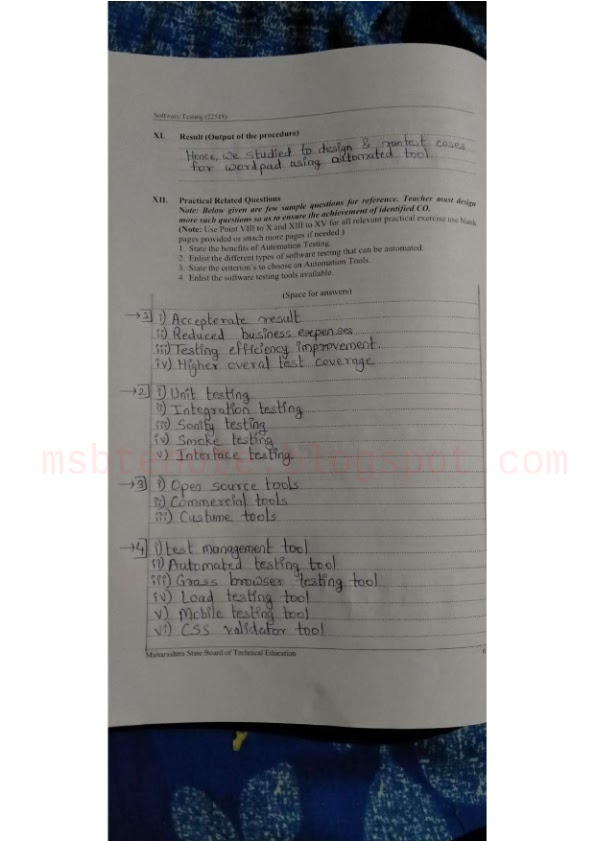 Software Testing (22518)
XI. Result (Output of the procedure)
Hence, we studied to design & run test cases
for wordpad using automated tool.
XII. Practical Related Questions
Note: Below given are few sample questions for reference. Teacher must design
more such questions so as to ensure the achievement of identified CO.
(Note: Use Point VIII to X and XIII to XV for all relevant practical exercise use blank
pages provided or attach more pages if needed.)
1. State the benefits of Automation Testing.
2. Enlist the different types of software testing that can be automated.
3. State the criterion's to choose an Automation Tools.
4. Enlist the software testing tools available.
(Space for answers)
→1] i) Accepterate result
ii) Reduced business expenses
iii) Testing efficiency improvement.
iv) Higher overal test coverage
→2] i) Unit testing
ii) Integration testing
iii) Sanity testing
iv) Smoke testing
v) Interface testing.
msbtenote.blogspot.com
→3] i) Open source tools
ii) Commercial tools
iii) Custume tools
→4] i) test management tool
ii) Automated testing tool
iii) Grass browser testing tool
iv) Load testing tool
v) Mobile testing tool
vi) CSS validator tool
Maharashtra State Board of Technical Education